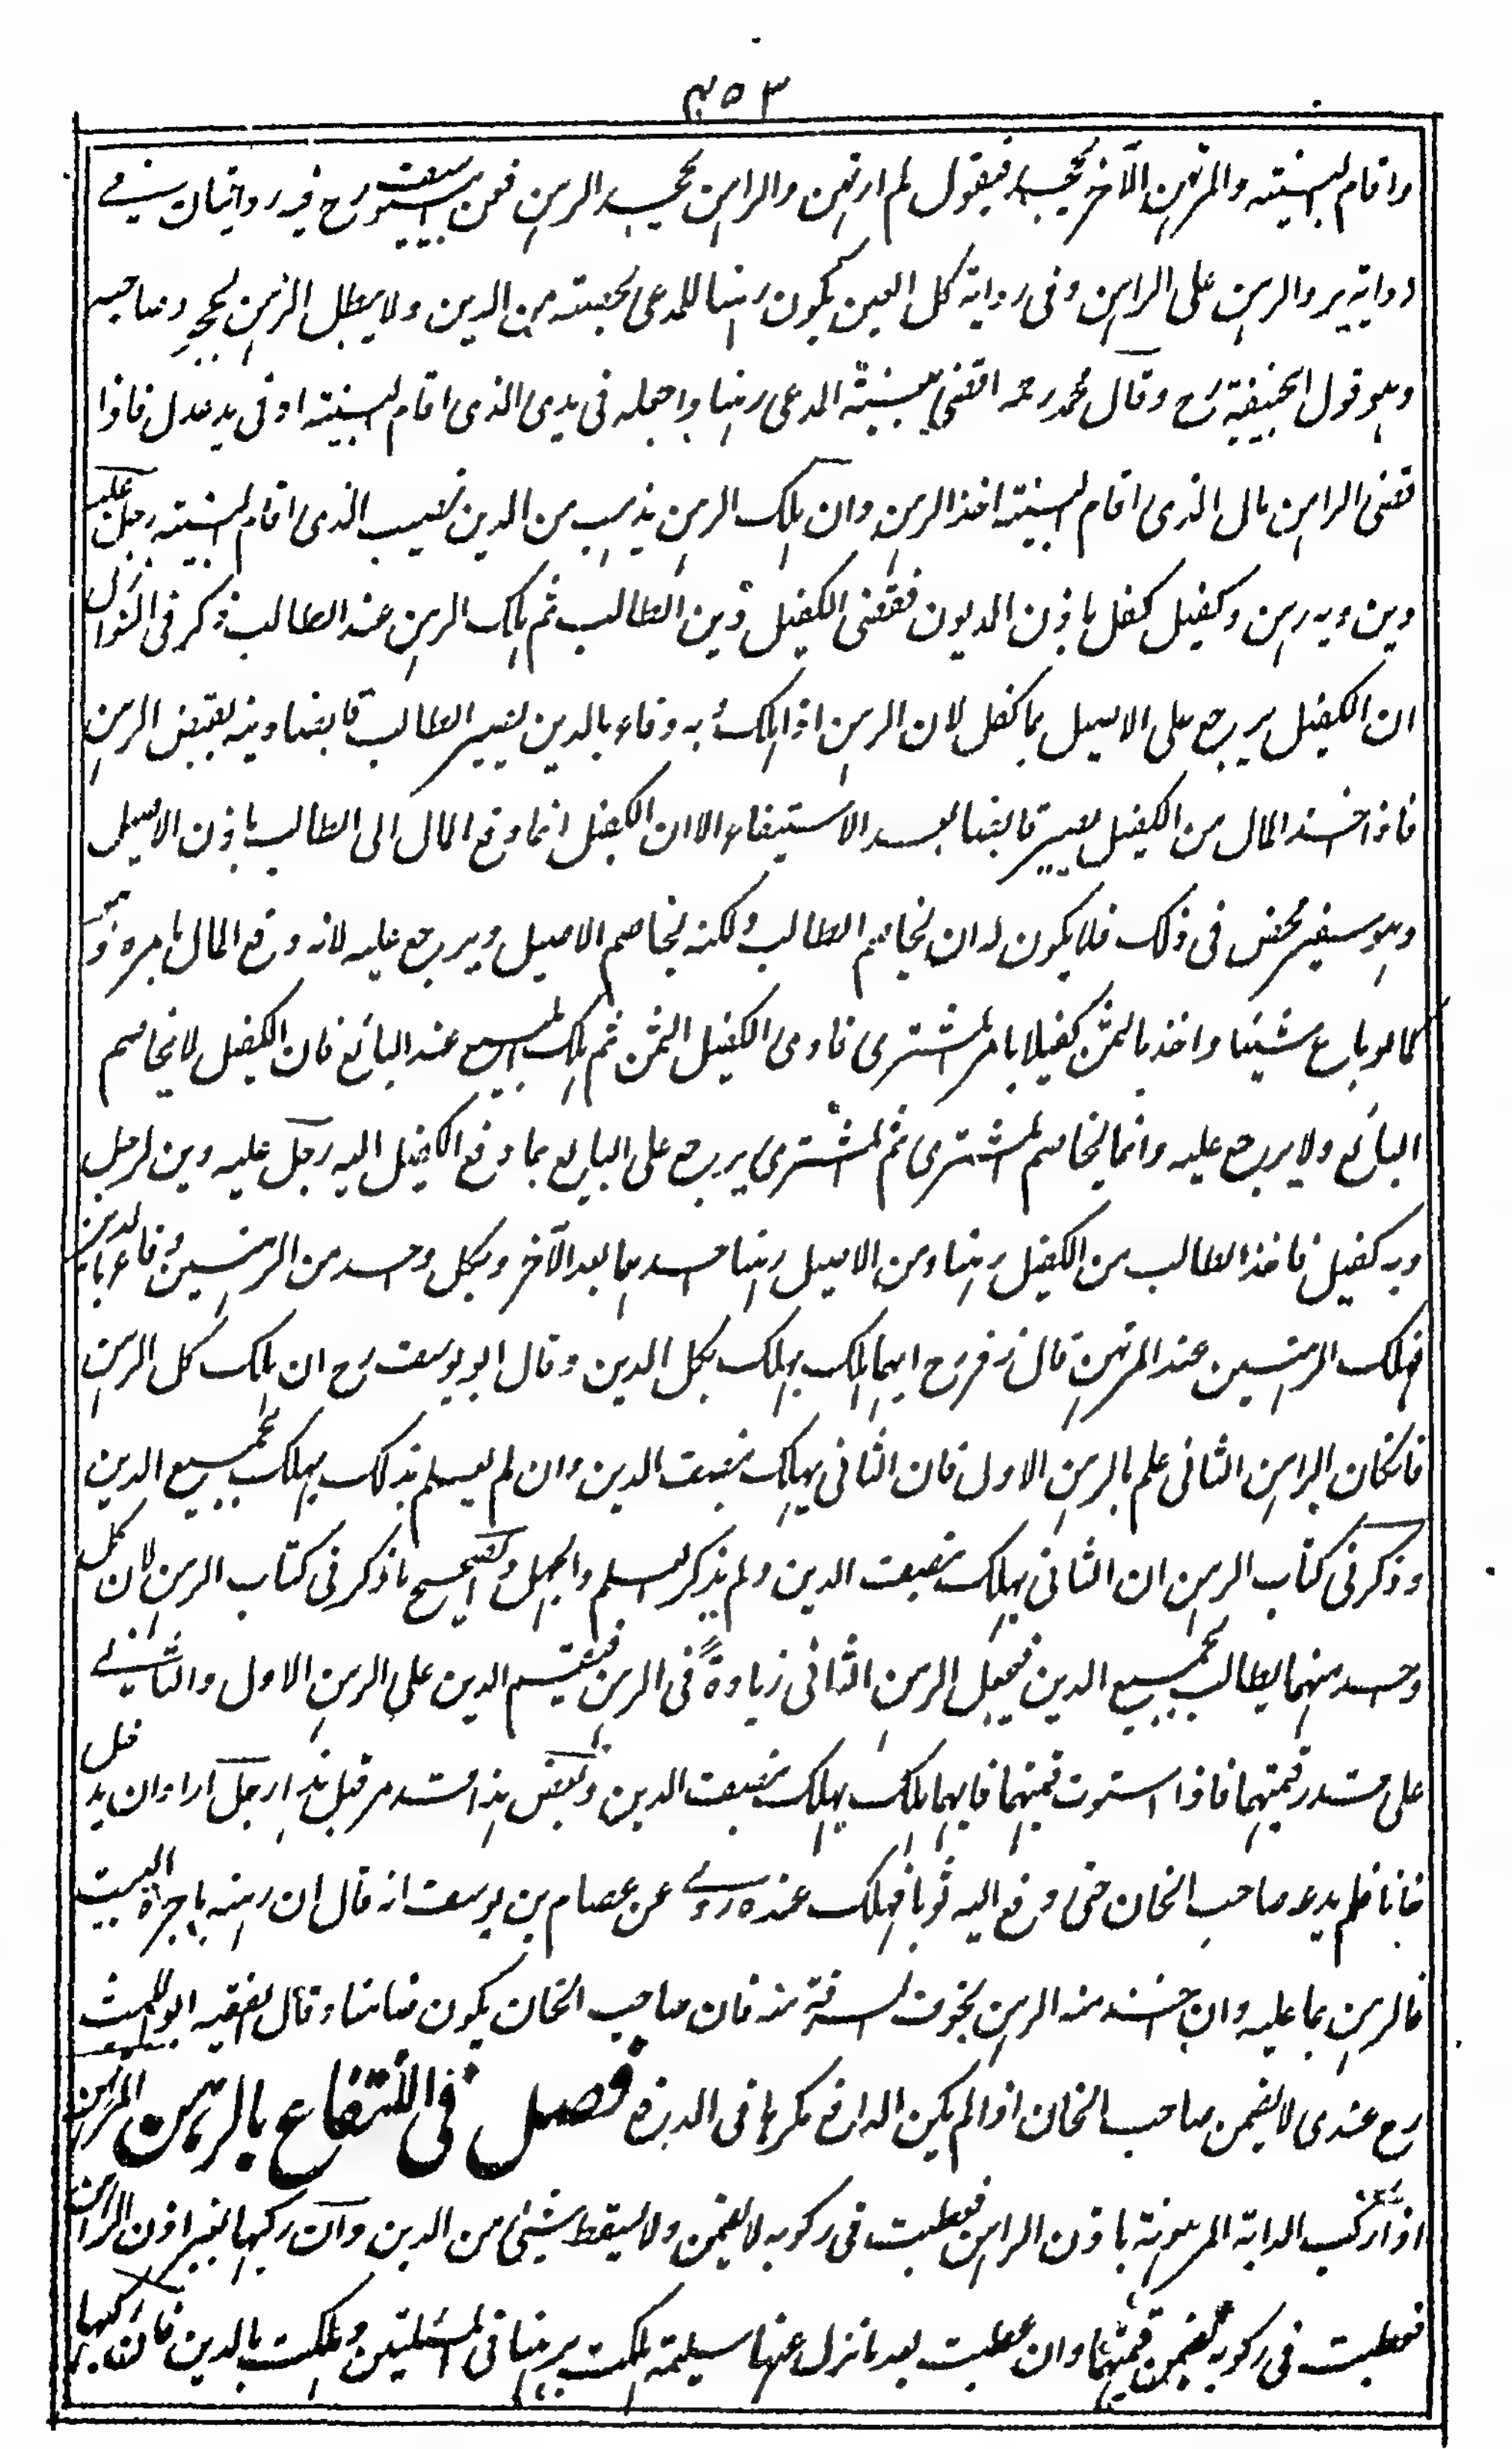 ۴۵۳
واقام البينة والمرتهن الآخر يجحد فيقول لم ارتهن والراهن يجحد الرهن فعن ابي يوسف رح فيه روايتان في
رواية يرد الرهن على الراهن وفى رواية كل العين يكون رهنا للمدعى بحصته من الدين ولا يبطل الرهن بجحود صاحبه
وهو قول ابيحنيفة رح وقال محمد رحمه اقضى ببينة المدعى رهنا واجعله فى يدى الذى اقام البينة او فى يد عدل فاذا
قضى الراهن مال الذى اقام البينة اخذ الرهن وان هلك الرهن يذهب من الدين نصيب الذى اقام البينة رجل عليه
دين وبه رهن وكفيل كفل باذن المديون فقضى الكفيل دين الطالب ثم هلك الرهن عند الطالب ذكر فى النوازل
ان الكفيل يرجع على الاصيل بما كفل لان الرهن اذا هلك وبه وفاء بالدين يصير الطالب قابضا دينه بقبض الرهن
فاذا اخذ المال من الكفيل يصير قابضا بعد الاستيفاء الا ان الكفيل انما دفع المال الى الطالب باذن الاصيل
وهو سفير محض فى ذلك فلا يكون له ان يخاصم الطالب ولكنه يخاصم الاصيل ويرجع عليه لانه دفع المال بامره
كما لو باع شيئا واخذ بالثمن كفيلا بامر المشترى فادى الكفيل الثمن ثم هلك المبيع عند البائع فان الكفيل لا يخاصم
البائع ولا يرجع عليه وانما يخاصم المشترى ثم المشترى يرجع على البايع بما دفع الكفيل اليه رجل عليه دين لرجل
وبه كفيل فاخذ الطالب من الكفيل رهنا ومن الاصيل رهنا احدهما بعد الآخر وبكل واحد من الرهنين وفاء بالدين
فهلك احد الرهنين عند المرتهن قال زفر رح ايهما هلك يهلك بكل الدين وقال ابو يوسف رح ان هلك كل الرهن
فانكان الراهن الثانى علم بالرهن الاول فان الثانى يهلك بنصف الدين وان لم يعلم بذلك يهلك بجميع الدين
وذكر فى كتاب الرهن ان الثانى يهلك بنصف الدين ولم يذكر العلم والجهل والصحيح ما ذكر فى كتاب الرهن لان كل
واحد منهما يطالب بجميع الدين فيجعل الرهن الثانى زيادة فى الرهن فيقسم الدين على الرهن الاول والثانى
على قدر قيمتهما فاذا استوت قيمتهما فايهما هلك يهلك بنصف الدين وبعض هذا قد مر قبل هذا رجل اراد ان يدخل
خانا فلم يدعه صاحب الخان حتى دفع اليه ثوبا فهلك عنده روى عن عصام بن يوسف انه قال ان رهنه باجرة البيت
فالرهن بما عليه وان اخذ منه الرهن لخوف السرقة منه فان صاحب الخان يكون ضامنا وقال الفقيه ابو الليث
رح عندى لا يضمن صاحب الخان اذا لم يكن الدافع مكرها فى الدفع فصل فى الانتفاع بالرهن المرتهن
اذا ركب الدابة المرهونة باذن الراهن فعطبت فى ركوبه لا يضمن ولا يسقط شيئ من الدين وان ركبها بغير اذن الراهن
فعطبت فى ركوبه يضمن قيمتها وان عطبت بعد ما نزل عنها سليمة هلكت برهنها فى المسئلتين وهلكت بالدين فان ركبها